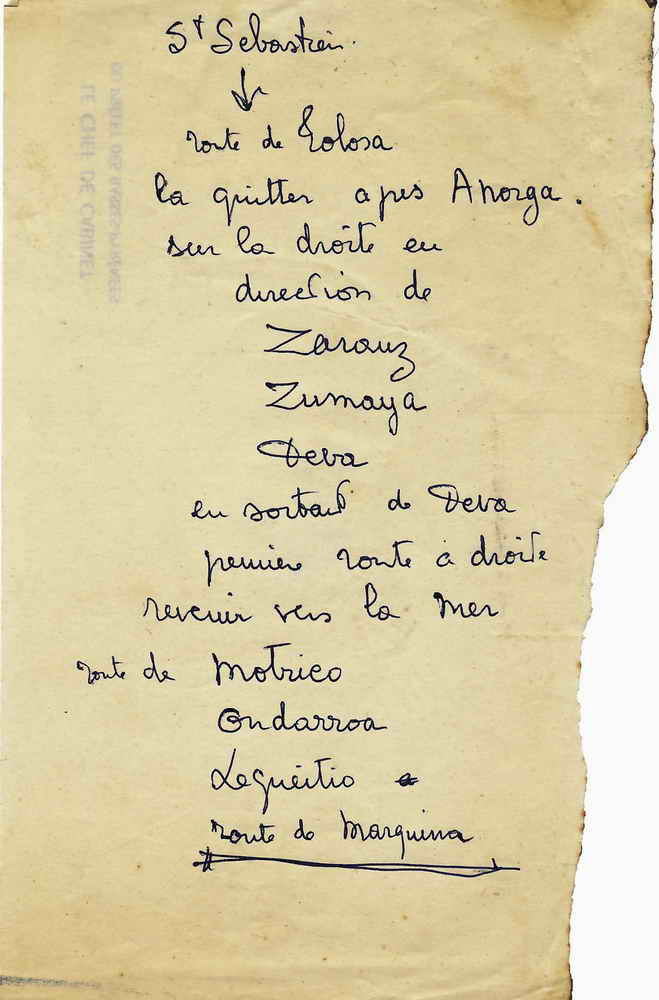 St Sebastien.
route de Tolosa
la quitter apres Ahorga.
sur la droite en
direction de
Zarauz
Zumaya
Deva
en sortant de Deva
premiere route a droite
revenir vers la mer
route de Motrico
Ondarroa
Lequeitio
route de Marquina
LE CHEF DE CABINET